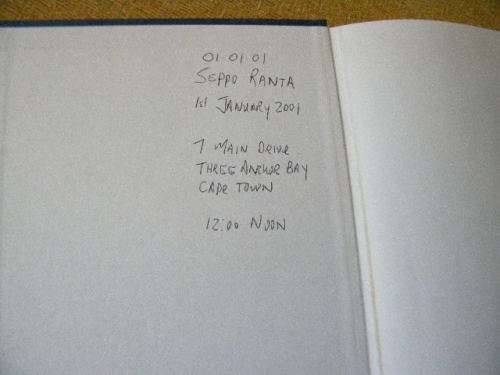 01 01 01
SEPPO RANTA
1st JANUARY 2001
7 MAIN DRIVE
THREE ANCHOR BAY
CAPE TOWN
12:00 NOON